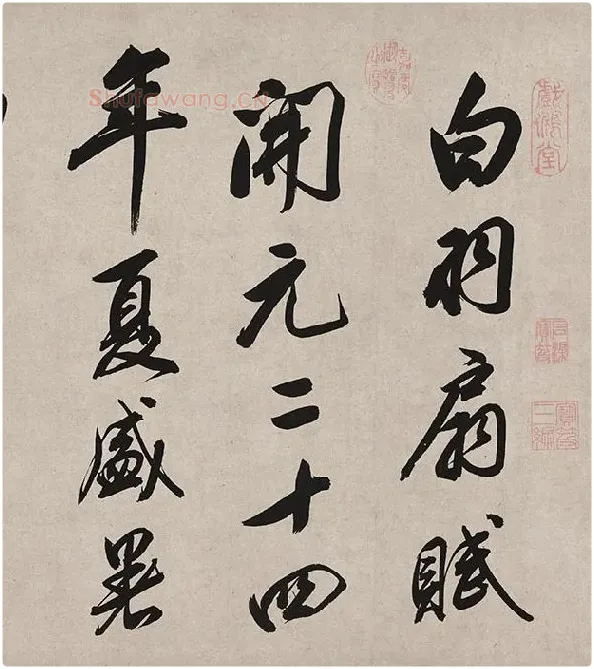 白羽扇賦
開元二十四
年夏盛暑
戲鴻堂
Shufawang.CN